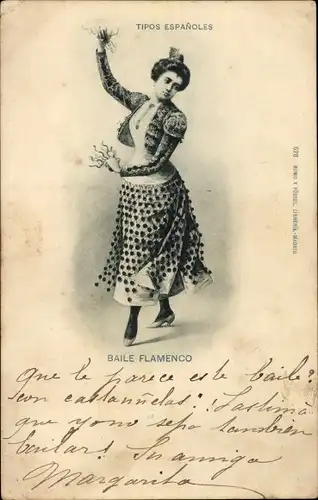 TIPOS ESPAÑOLES
BAILE FLAMENCO
Que te parece este baile?
con castañuelas! Lastima
que yo no sepa tambien
bailar! Su amiga
Margarita